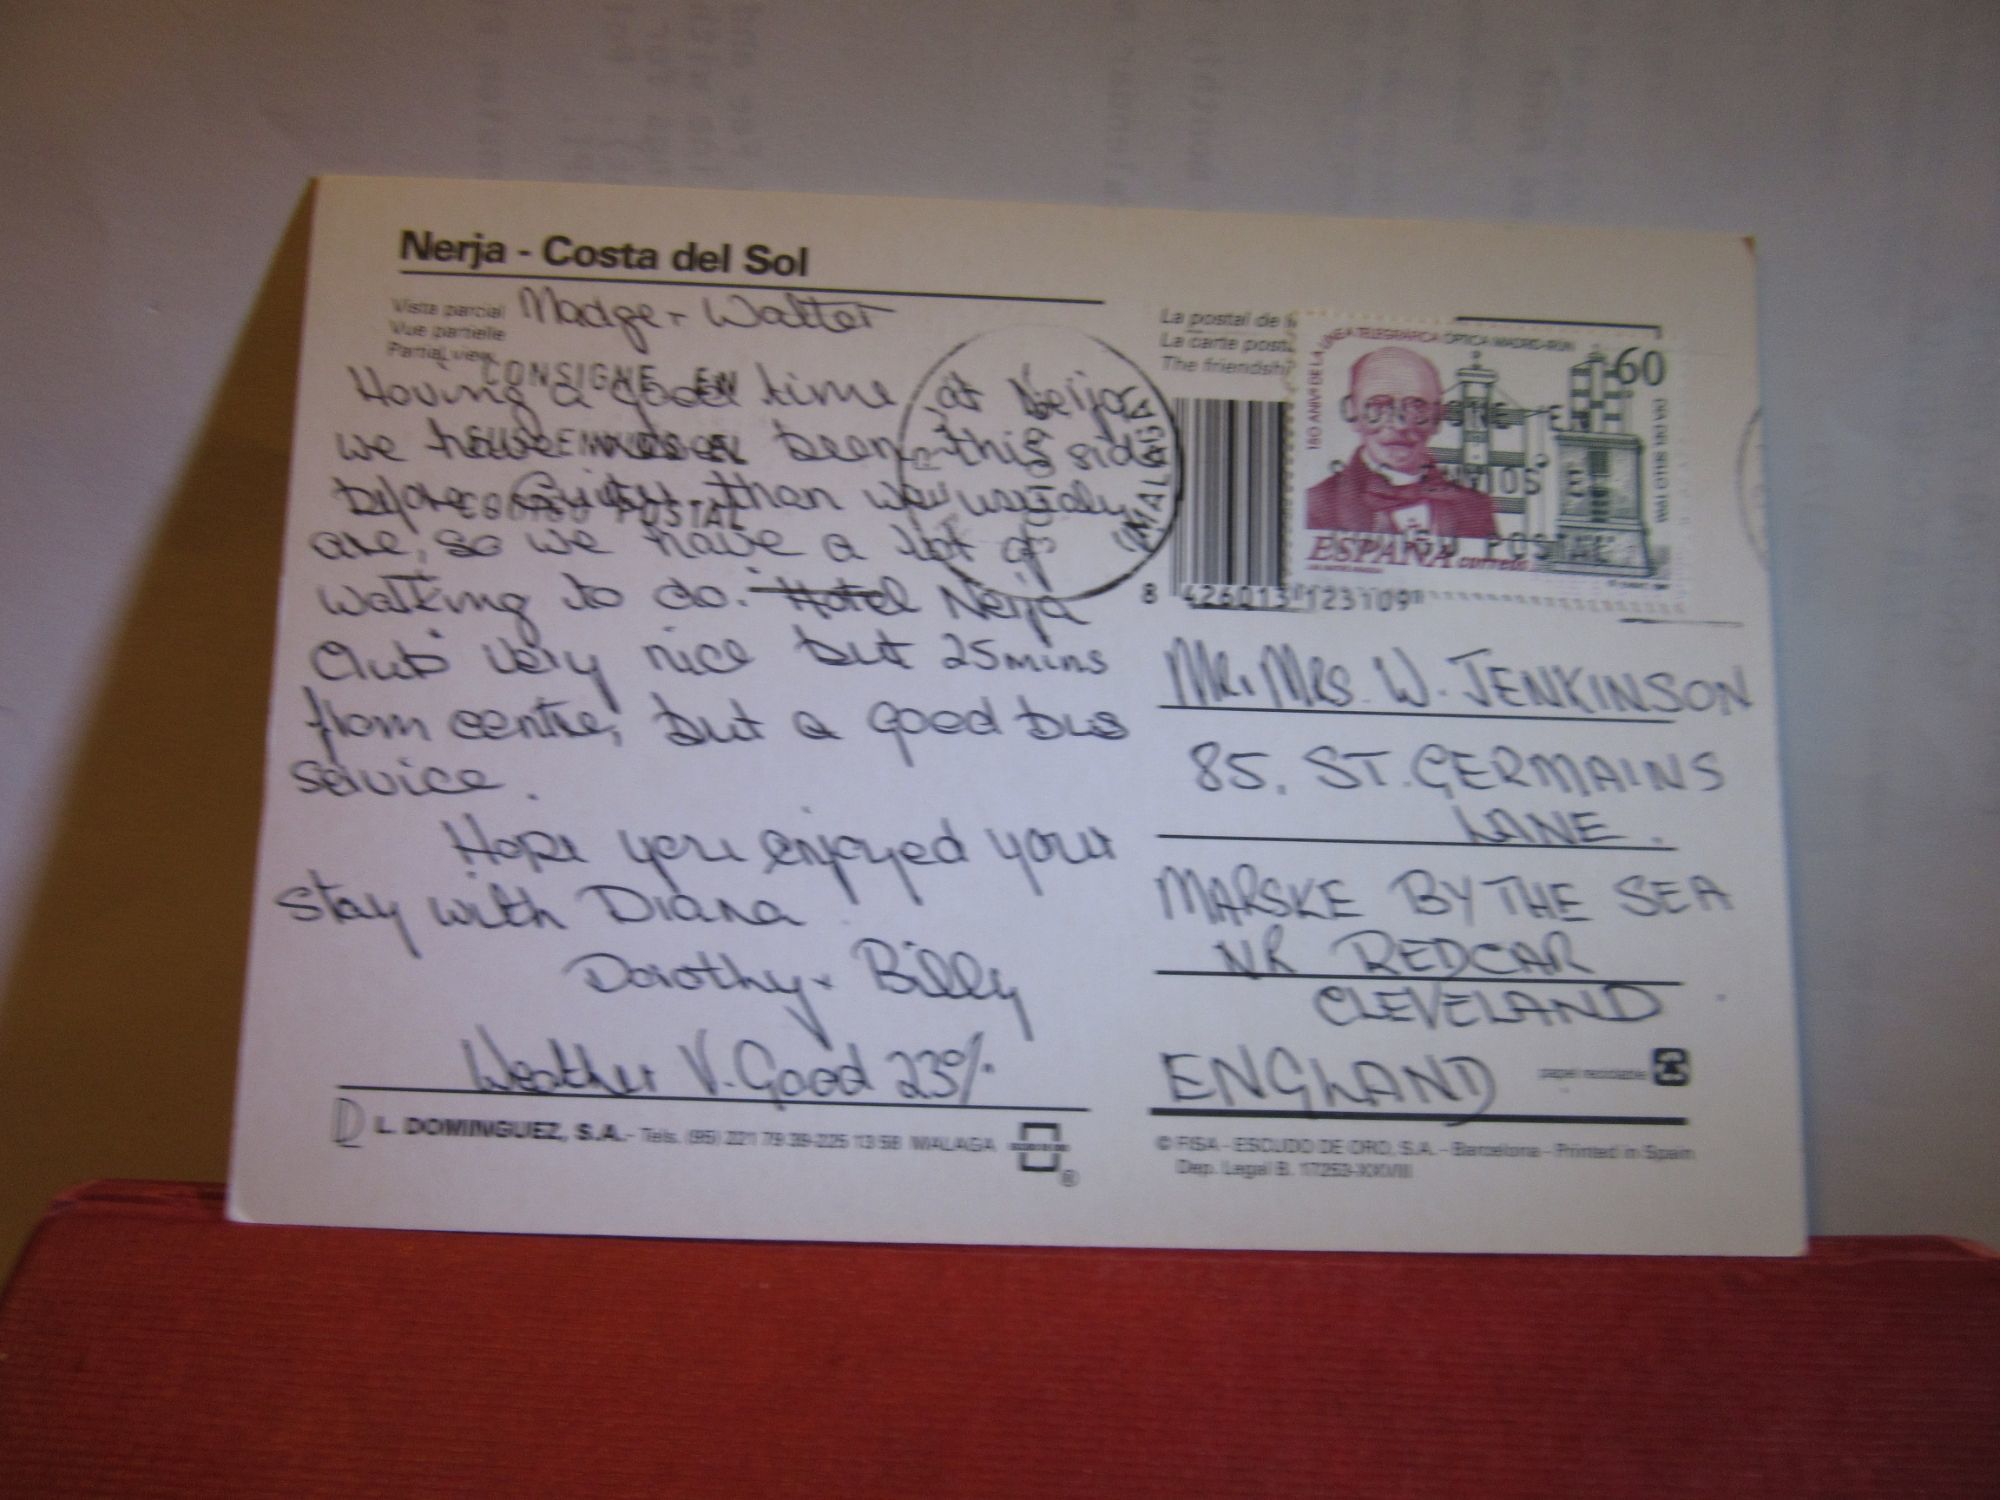 Nerja - Costa del Sol
Vista parcial
Vue partielle
Partial view
Madge + Walter
Having a good time at Nerja
we have never been this side
before. Quieter than we usualy
are, so we have a lot of
walking to do. Hotel Nerja
Club very nice but 25mins
from centre, but a good bus
service.
Hope you enjoyed your
stay with Diana
Dorothy + Billy
Weather V. Good 23%.
L. DOMINGUEZ, S.A. - Tels. (95) 221 79 39-225 13 58 MALAGA
®
CONSIGNE EN
SUS ENVIOS EL
CODIGO POSTAL
MALAGA
La postal de
La carte post
The friendsh
60
ESPAÑA correos
CONSIGNE EN
SUS ENVIOS EL
CODIGO POSTAL
8 426013 123109
Mr. Mrs. W. JENKINSON
85, ST. GERMAINS
LANE.
MARSKE BY THE SEA
NR REDCAR
CLEVELAND
ENGLAND
papel reciclable
© FISA - ESCUDO DE ORO, S.A. - Barcelona - Printed in Spain
Dep. Legal B. 17253-XXVIII